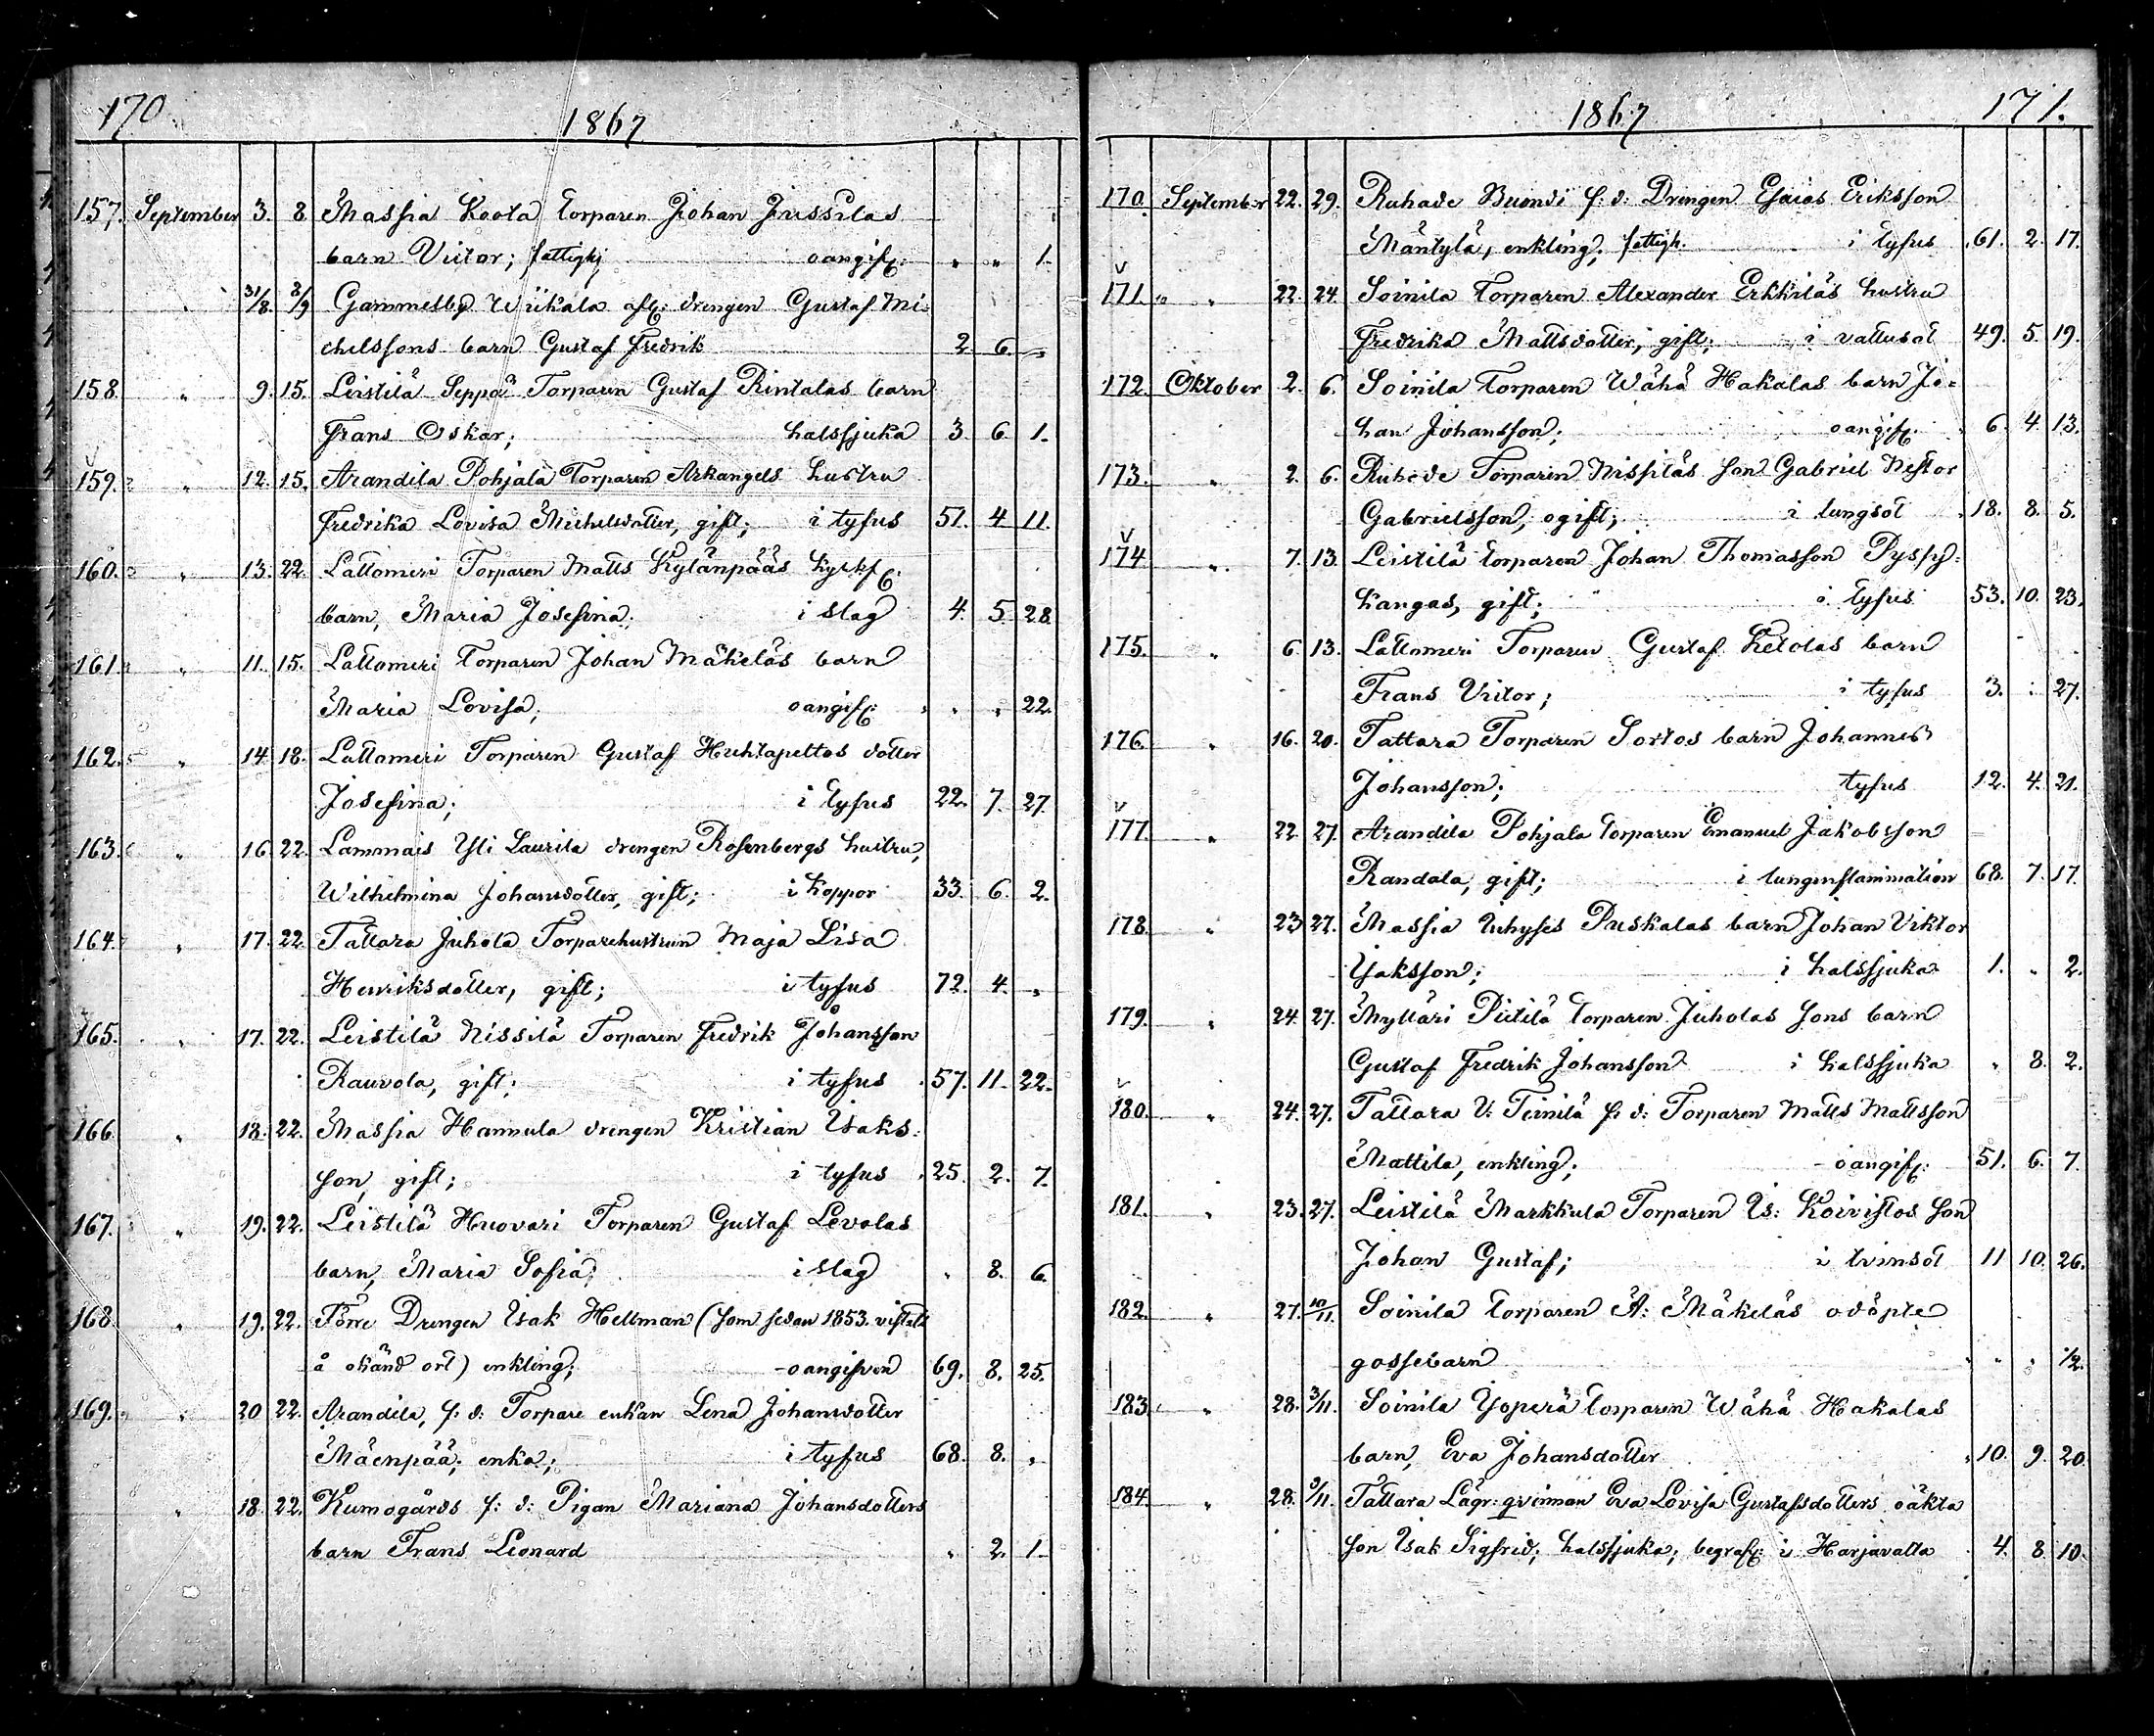 170
1867
157. September 3. 8. Massia Koota Torparen Johan Jussilas
barn Victor; fattighj oangif: " " 1.
" 31/8. 8/9 Gammelby Wiikala afl: drengen Gustaf Mi-
chelssons barn Gustaf Fredrik 2 6. "
158. " 9. 15. Leistilä Seppä Torparen Gustaf Rintalas barn
Frans Oskar; halssjuka 3. 6. 1.
159. " 12. 15. Arandila Pohjala Torparen Arkangels hustru
Fredrika Lovisa Michelsdotter, gift; i tyfus 51. 4 11.
160. " 13. 22. Lattomeri Torparen Matts Kylänpääs
barn, Maria Josefina; i slag 4. 5. 28.
161. " 11. 15. Lattomeri Torparen Johan Mäkeläs barn
Maria Lovisa; oangif: " " 22.
162. " 14. 18. Lattomeri Torparen Gustaf Huhtapeltos dotter
Josefina; i tyfus 22. 7. 27.
163. " 16. 22. Lammais Yli Laurila drengen Rosenbergs hustru,
Wilhelmina Johansdotter, gift; i koppor 33. 6. 2.
164. " 17. 22. Tattara Juhola Torparehustrun Maja Lisa
Henriksdotter, gift; i tyfus 72. 4. "
165. " 17. 22. Leistilä Nissilä Torparen Fredrik Johansson
Rauvola, gift; i tyfus 57. 11. 22.
166. " 18. 22. Massia Hannula drengen Kristian Isaks-
son, gift; i tyfus 25. 2. 7.
167. " 19. 22. Leistilä Huovari Torparen Gustaf Levolas
barn, Maria Sofia; i slag " 8. 6.
168. " 19. 22. Torre Drengen Isak Hellman (som sedan 1853. vistats
å okänd ort) enkling; oangifven 69. 8. 25.
169. " 20 22. Arandila, f: d: Torpare enkan Lena Johansdotter
Mäenpää; enka; i tyfus 68. 8. "
" 18. 22. Kumogårds f: d: Pigan Mariana Johansdotters
barn Frans Leonard " 2. 1.
1867
171.
170. September 22. 29. Ruhade Buondi f: d: Drengen Esaias Eriksson
Mäntylä, enkling; fattigh. i tyfus 61. 2. 17.
171. " " 22. 24. Soinila Torparen Alexander Erkkiläs hustru
Fredrika Mattsdotter, gift; i vattusot 49. 5. 19.
172. Oktober 2. 6. Soinila Torparen Wähä Hakalas barn Jo-
han Johansson; oangif: 6. 4. 13.
173. " 2. 6. Ruhade Torparen Nissiläs son Gabriel Nestor
Gabrielsson, ogift; i lungsot 18. 8. 5.
174. " 7. 13. Leistilä Torparen Johan Thomasson Pyssy-
kangas, gift; i tyfus 53. 10. 23.
175. " 6. 13. Lattomeri Torparen Gustaf Ketolas barn
Frans Victor; i tyfus 3. " 27.
176. " 16. 20. Tattara Torparen Sortos barn Johannes
Johansson; tyfus 12. 4. 21.
177. " 22. 27. Arandila Pohjala Torparen Emanuel Jakobsson
Randala, gift; i lunginflammation 68. 7. 17.
178. " 23 27. Massia Puskalas barn Johan Viktor
Isaksson; i halssjuka 1. " 2.
179. " 24. 27. Mylläri Piitilä Torparen Juholas sons barn
Gustaf Fredrik Johansson i halssjuka " 8. 2.
180. " 24. 27. Tattara V: Teinilä f: d: Torparen Matts Mattsson
Mattila, enkling; oangif: 51. 6. 7.
181. " 23. 27. Leistilä Markkula Torparen Is: Koivistos son
Johan Gustaf; i tvinsot 11 10. 26.
182. " 27. 10/11. Soinila Torparen A: Mäkeläs odöpte
gossebarn " " 1/2.
183. " 28. 3/11. Soinila Yoperä Torparen Wähä Hakalas
barn, Eva Johansdotter 10. 9. 20.
184. " 28. 3/11. Tattara Lägr: qvinnan Eva Lovisa Gustafsdotters oäkta
son Isak Sigfrid; halssjuka; begraf: i Harjavalta 4. 8. 10.